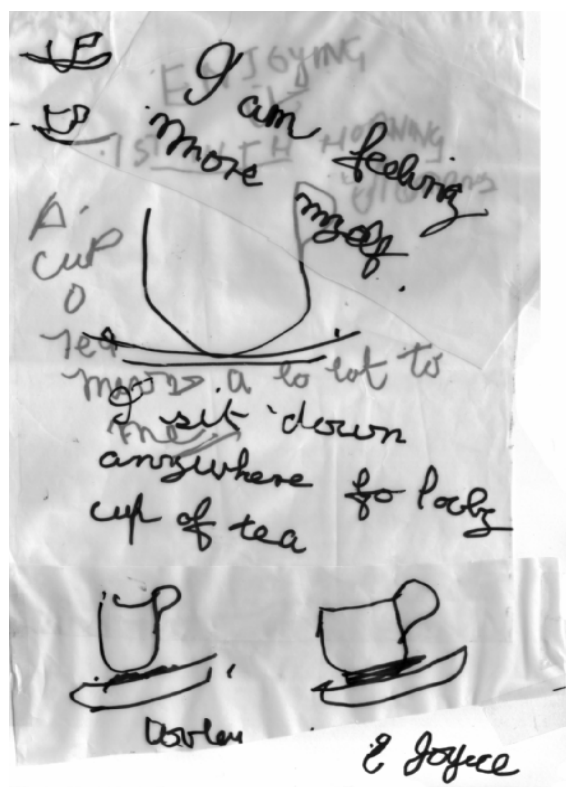 ENJOYING
I am
more feeling
myself.
MORNING
A.
CUP
O
Tea
means a lo lot to
me.
I sit down
anywhere fo lovly
cup of tea
E Joyce